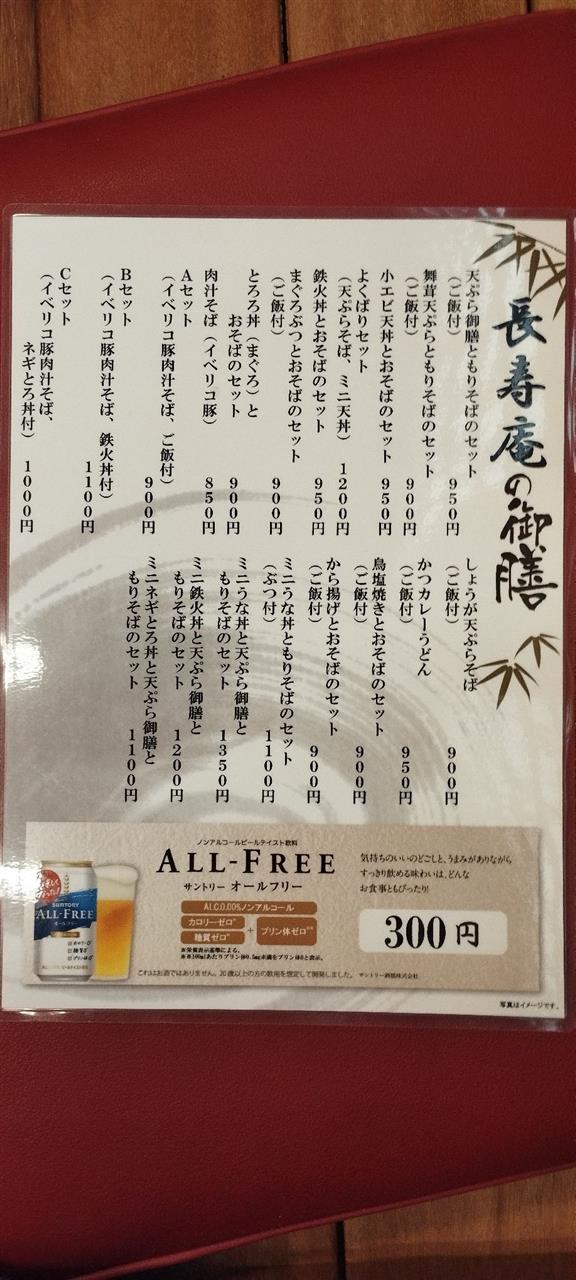 長寿庵の御膳
天ぷら御膳ともりそばのセット
（ご飯付） 950円
舞茸天ぷらともりそばのセット
（ご飯付） 900円
小エビ天丼とおそばのセット 950円
よくばりセット
（天ぷらそば、ミニ天丼） 1200円
鉄火丼とおそばのセット 950円
まぐろぶつとおそばのセット
（ご飯付） 900円
とろろ丼（まぐろ）と
おそばのセット 900円
肉汁そば（イベリコ豚） 850円
Aセット
（イベリコ豚肉汁そば、ご飯付） 900円
Bセット
（イベリコ豚肉汁そば、鉄火丼付） 1100円
Cセット
（イベリコ豚肉汁そば、
ネギとろ丼付） 1000円
しょうが天ぷらそば
（ご飯付） 900円
かつカレーうどん
（ご飯付） 950円
鳥塩焼きとおそばのセット
（ご飯付） 900円
から揚げとおそばのセット
（ご飯付） 900円
ミニうな丼ともりそばのセット
（ぶつ付） 1100円
ミニうな丼と天ぷら御膳と
もりそばのセット 1350円
ミニ鉄火丼と天ぷら御膳と
もりそばのセット 1200円
ミニネギとろ丼と天ぷら御膳と
もりそばのセット 1100円
ノンアルコールビールテイスト飲料
ALL-FREE
サントリー オールフリー
ALC.0.00%ノンアルコール
カロリーゼロ※
糖質ゼロ※
+
プリン体ゼロ※※
※栄養表示基準による。
※※100mlあたりプリン体0.5mg未満をプリン体0と表示。
気持ちのいいのどごしと、うまみがありながら
すっきり飲める味わいは、どんな
お食事ともぴったり!
300円
これはお酒ではありません。20歳以上の方の飲用を想定して開発しました。 サントリー酒類株式会社
SUNTORY
ALL-FREE
オールフリー
写真はイメージです。